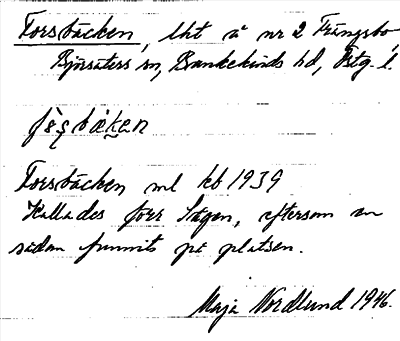 Forsbäcken, lht å nr 2 Frängsbo
Bjärsäters sn, Bankekinds hd, Östg. l.
fo̩s̩bäk̩en
Forsbäcken ml kb 1939
Kallades förr Sågen, eftersom en
sådan funnits på platsen.
Maja Nordlund 1946.